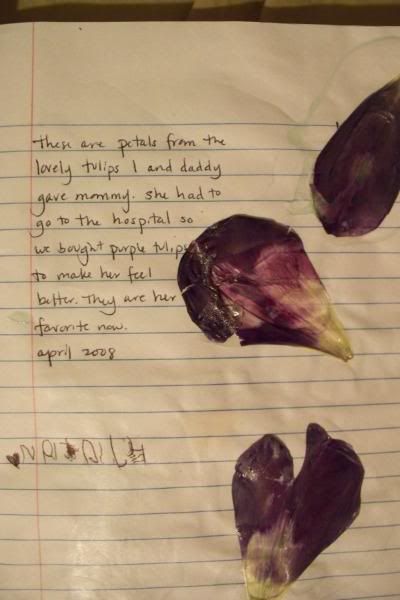 These are petals from the
lovely tulips I and daddy
gave mommy. she had to
go to the hospital so
we bought purple tulips
to make her feel
better. They are her
favorite now.
april 2008
♥NATALIE